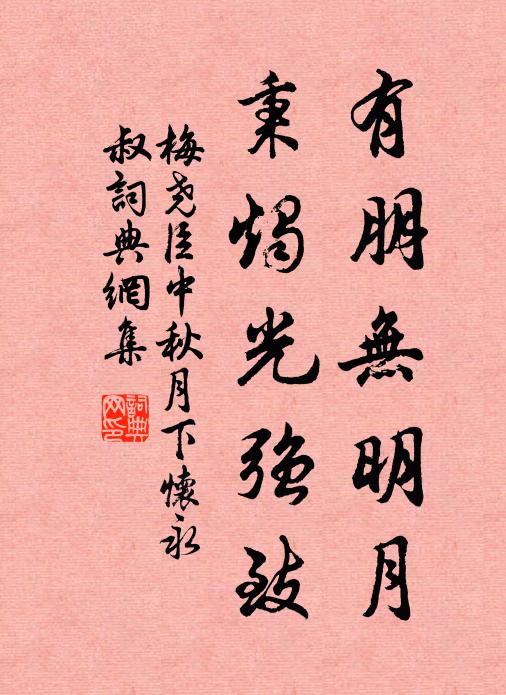 有朋無明月
秉燭光強致
梅堯臣中秋月下懷永
叔詞典網集
詞典
网印